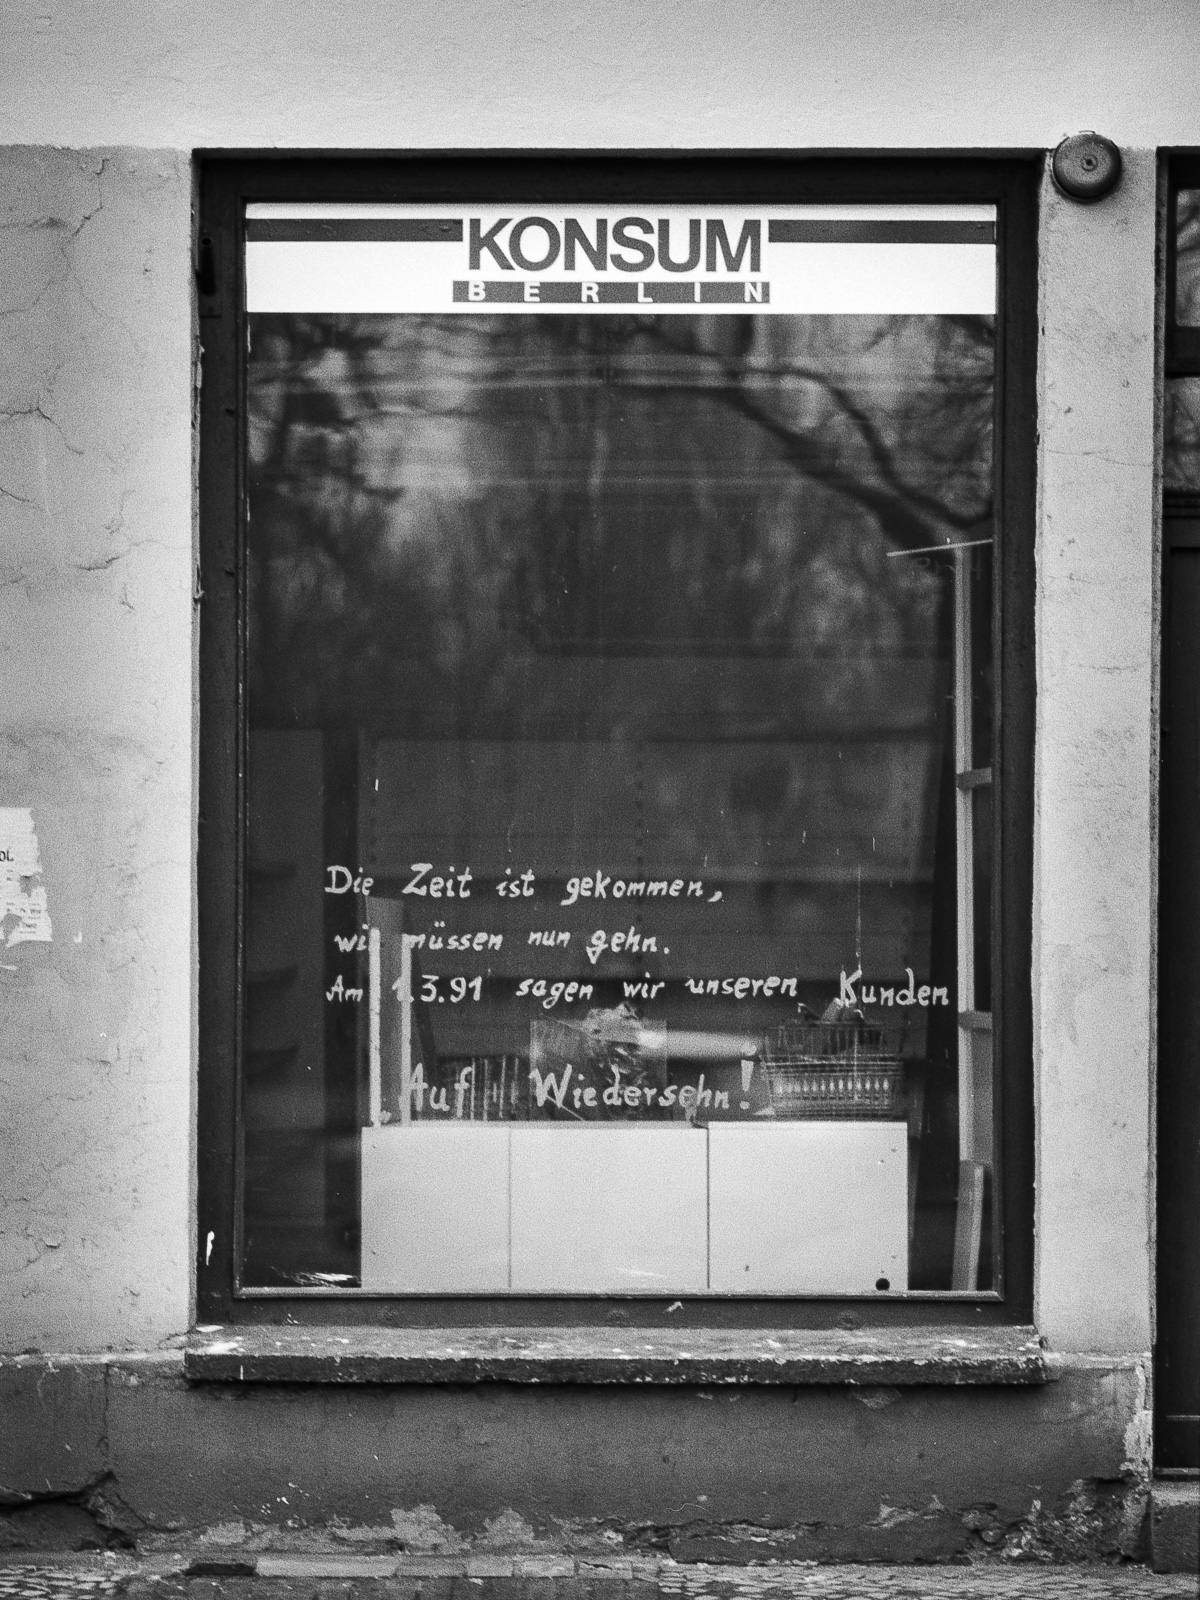 KONSUM
BERLIN
Die Zeit ist gekommen,
wir müssen nun gehn.
Am 1.3.91 sagen wir unseren Kunden
Auf Wiedersehn!